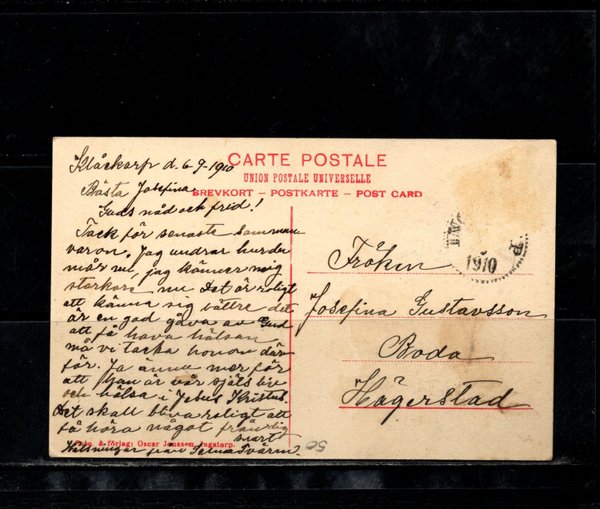 Klåckarp d. 6-9-1910
CARTE POSTALE
UNION POSTALE UNIVERSELLE
BREVKORT – POSTKARTE – POST CARD
Bästa Josefina.
Guds nåd och frid!
Tack för senaste samman
varon. Jag undrar hurdu
mår nu, jag känner mig
starkare nu. Det är roligt
att känna sig bättre det
är en god gåva av Gud
att få hava hälsan
må vi tacka honom där
för. Ja ännu mer för
att Han är vår själs liv
och hälsa i Jesus Kristus.
Det skall bliva roligt att
få höra något
snart
Foto. & förlag: Oscar Janssen
Hälsningar från
Fröken
Josefina Gustavsson
Boda
Hägerstad
1910
P
50